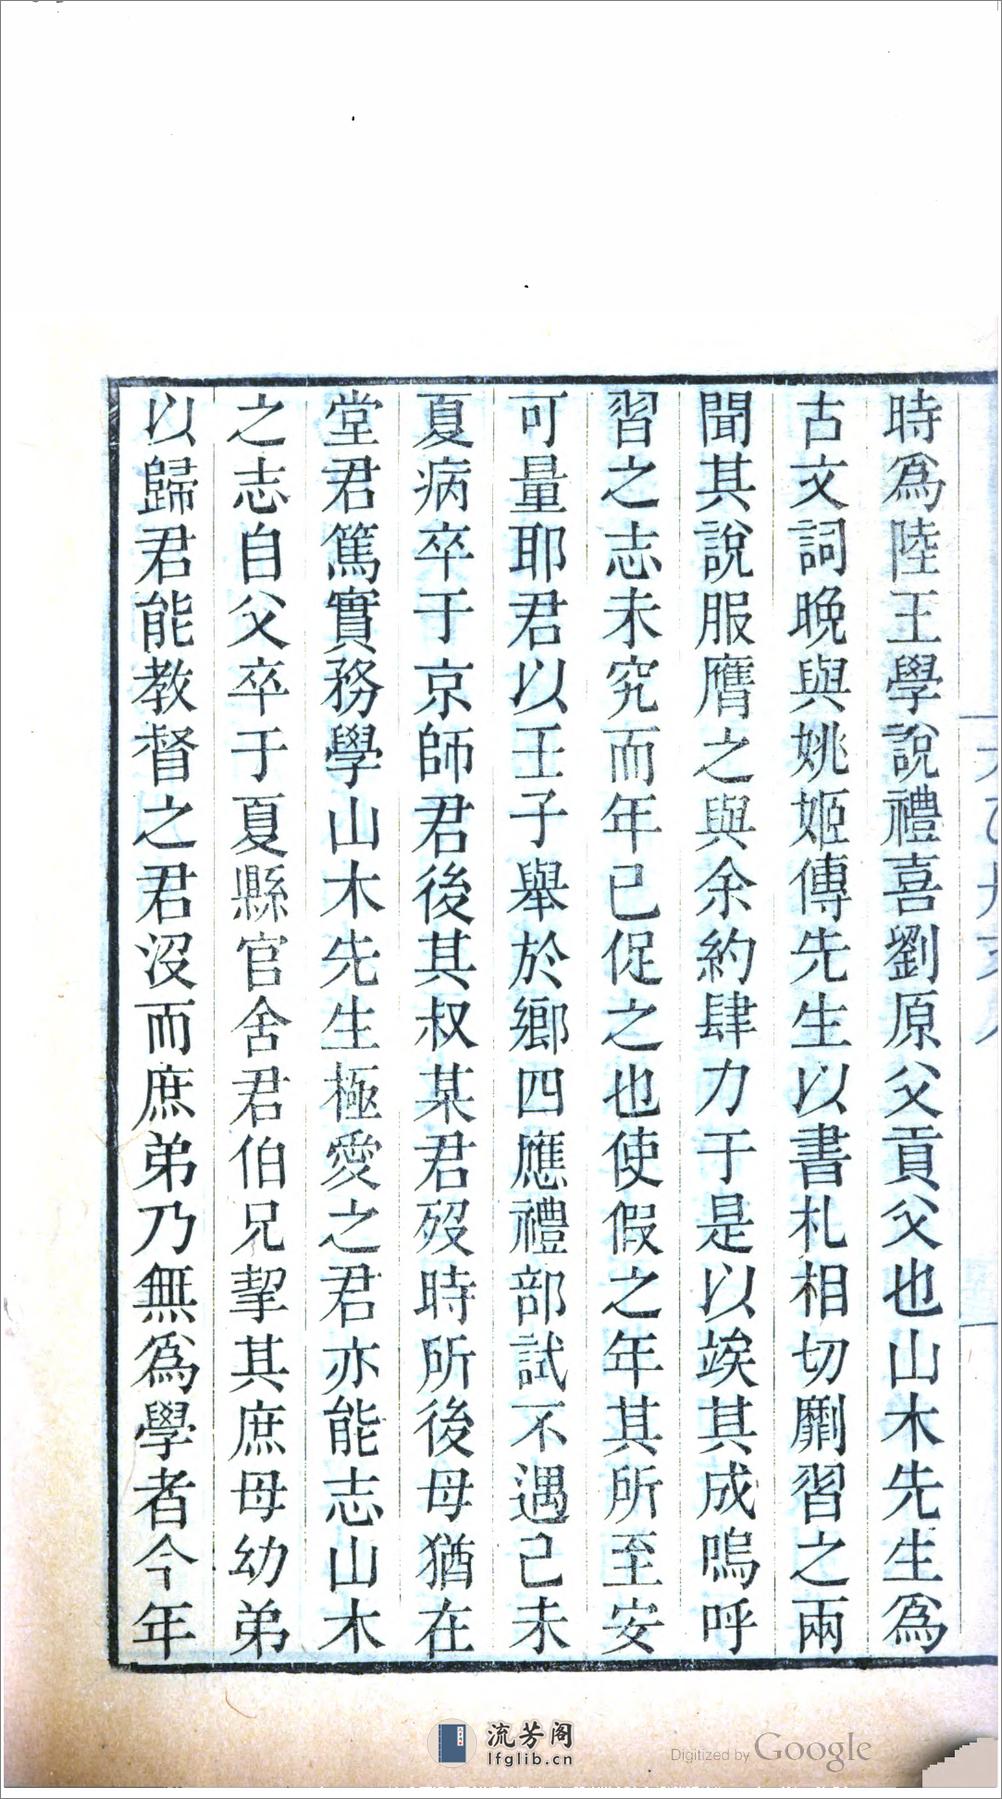 時爲陸王學說禮喜劉原父貢父也山木先生爲
古文詞晚與姚姬傳先生以書札相切劘習之兩
聞其說服膺之與余約肆力于是以竢其成嗚呼
習之志未究而年已促之也使假之年其所至安
可量耶君以壬子舉於鄉四應禮部試不遇己未
夏病卒于京師君後其叔某君歿時所後母猶在
堂君篤實務學山木先生極愛之君亦能志山木
之志自父卒于夏縣官舍君伯兄挈其庶母幼弟
以歸君能教督之君沒而庶弟乃無爲學者今年
流芳阁
lfglib.cn
Digitized by Google